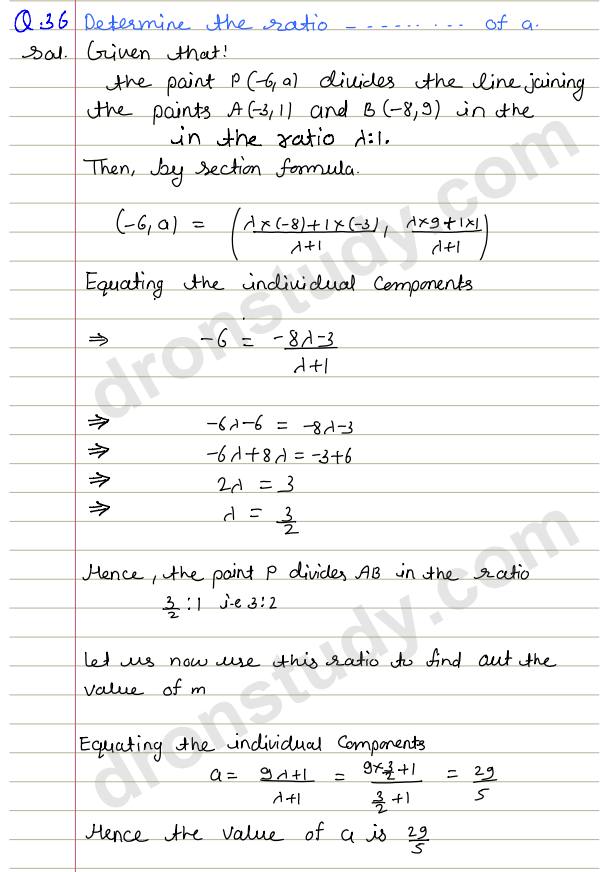 Q.36 Determine the ratio - - - - - - - - - of a.
Sol. Given that!
the point P(-6,a) divides the line joining
the points A(-3,1) and B(-8,9) in the
in the ratio λ:1.
Then, by section formula.
(-6,a) = (λ×(-8)+1×(-3)/λ+1, λ×9+1×1/λ+1)
Equating the individual Components
⇒ -6 = -8λ-3/λ+1
⇒ -6λ-6 = -8λ-3
⇒ -6λ+8λ = -3+6
⇒ 2λ = 3
⇒ λ = 3/2
Hence, the point P divides AB in the ratio
3/2 : 1 i.e 3:2
let us now use this ratio to find out the
value of m
Equating the individual Components
a = 9λ+1/λ+1 = 9×3/2+1/3/2+1 = 29/5
Hence the value of a is 29/5
dronstudy.com
dronstudy.com